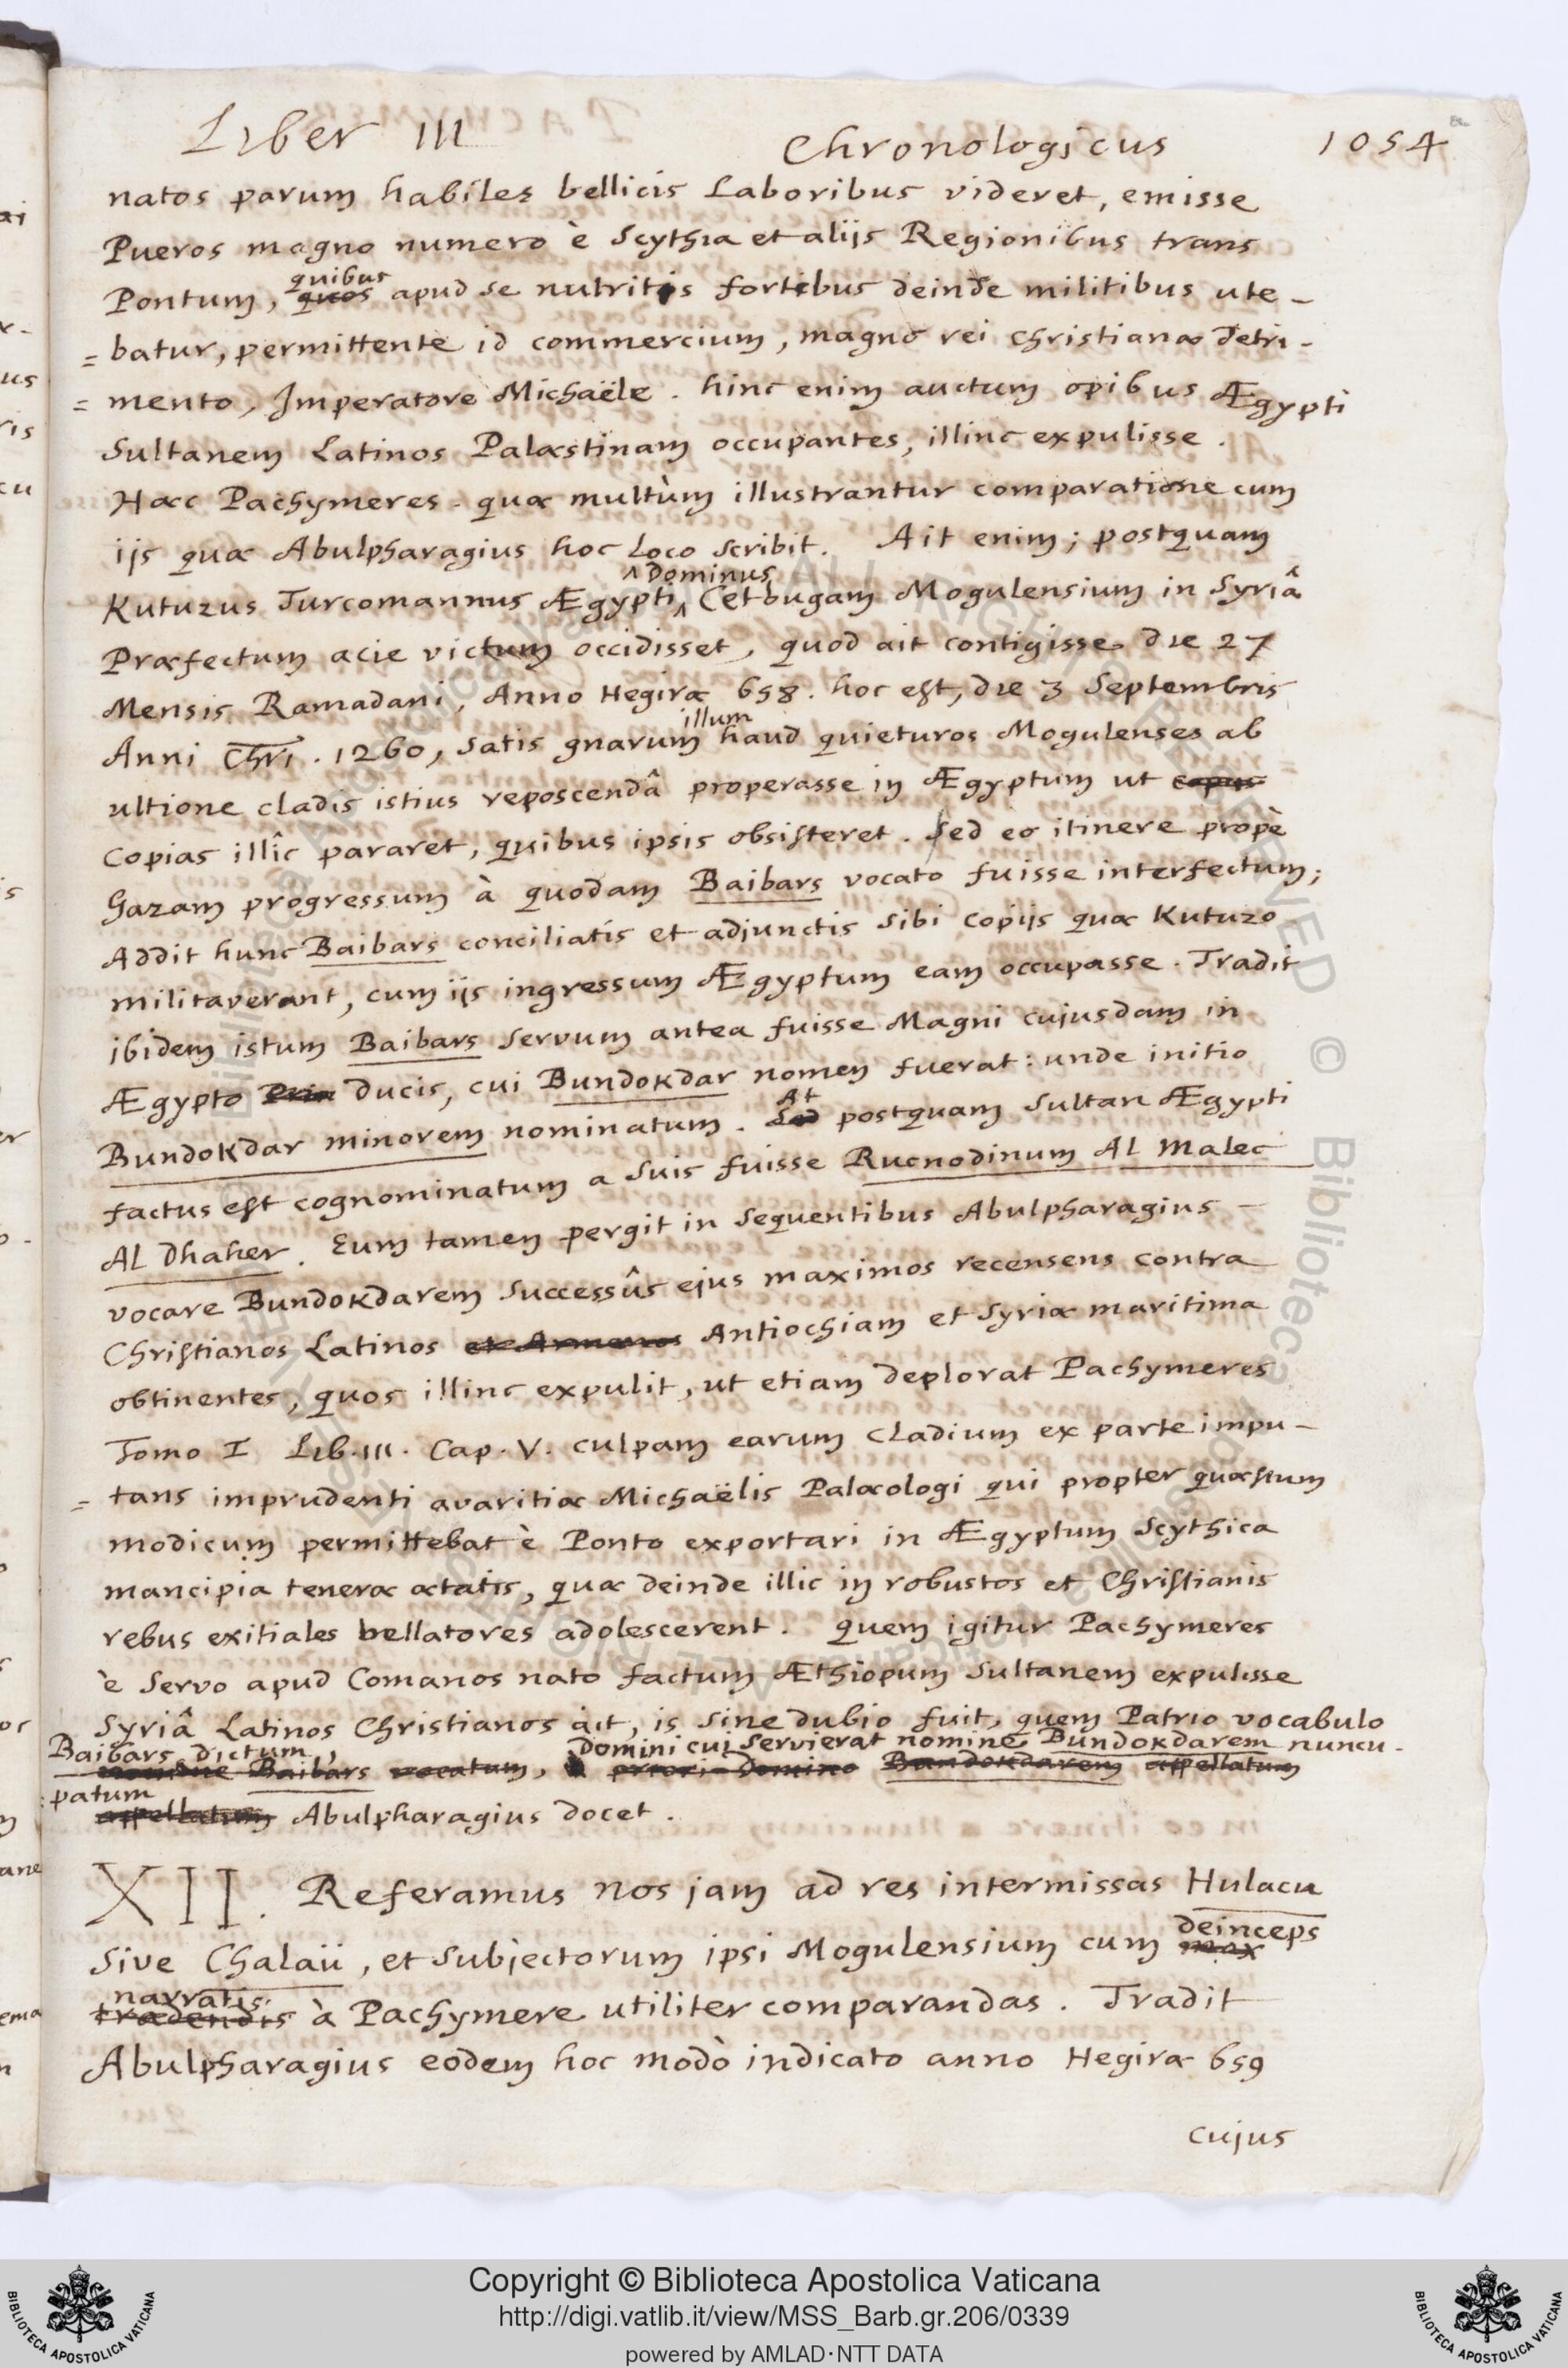 Liber III Chronologicus 1054
natos parum habiles bellicis Laboribus videret, emisse
Pueros magno numero è Scythia et alijs Regionibus trans
quibus
Pontum, quos apud se nutritis fortibus deinde militibus ute-
=batur, permittente id commercium, magno rei christianæ detri-
=mento, Imperatore Michaële. hinc enim auctum opibus Ægypti
Sultanem Latinos Palæstinam occupantes, illinc expulisse.
Hæc Pachymeres. quæ multùm illustrantur comparatione cum
ijs quæ Abulpharagius hoc Loco scribit. Ait enim; postquam
^ Dominus
Kutuzus Turcomannus Ægypti ^ Cetbugam Mogulensium in Syriâ
Præfectum acie victum occidisset, quod ait contigisse die 27
Mensis Ramadani, Anno Hegiræ 658. hoc est, die 3 Septembris
illum
Anni Chri. 1260, satis gnarum haud quieturos Mogulenses ab
ultione cladis istius reposcendâ properasse in Ægyptum ut copias
copias illîc pararet, quibus ipsis obsisteret. Sed eo itinere propè
Gazam progressum à quodam Baibars vocato fuisse interfectum;
Addit hunc Baibars conciliatis et adjunctis sibi copijs quæ Kutuzo
militaverant, cum ijs ingressum Ægyptum eam occupasse. Tradit
ibidem istum Baibars servum antea fuisse Magni cujusdam in
Ægypto Prin ducis, cui Bundokdar nomen fuerat: unde initio
At
Bundokdar minorem nominatum. Sed postquam Sultan Ægypti
factus est cognominatum a suis fuisse Rucnodinum Al Malec
Al Dhaher. Eum tamen pergit in sequentibus Abulpharagius
vocare Bundokdarem successûs ejus maximos recensens contra
Christianos Latinos et Armenos Antiochiam et Syriæ maritima
obtinentes, quos illinc expulit, ut etiam deplorat Pachymeres
Tomo I Lib. III. Cap. V. culpam earum cladium ex parte impu-
=tans imprudenti avaritiæ Michaëlis Palæologi qui propter quæstum
modicum permittebat è Ponto exportari in Ægyptum Scythica
mancipia teneræ ætatis, quæ deinde illic in robustos et Christianis
rebus exitiales bellatores adolescerent. quem igitur Pachymeres
è servo apud Comanos nato factum Æthiopum Sultanem expulisse
Syriâ Latinos Christianos ait, is sine dubio fuit, quem Patrio vocabulo
Baibars dictum, Domini cui servierat nomine Bundokdarem nuncu-
nomine Baibars vocatum, à priori Domino Bandokdarem appellatum
:patum
appellatum Abulpharagius docet.
XII. Referamus nos jam ad res intermissas Hulacu
deinceps
sive Chalaü, et subjectorum ipsi Mogulensium cum mox
narratis
tradendis à Pachymere utiliter comparandas. Tradit
Abulpharagius eodem hoc modò indicato anno Hegiræ 659
cujus
Copyright © Biblioteca Apostolica Vaticana
http://digi.vatlib.it/view/MSS_Barb.gr.206/0339
powered by AMLAD·NTT DATA